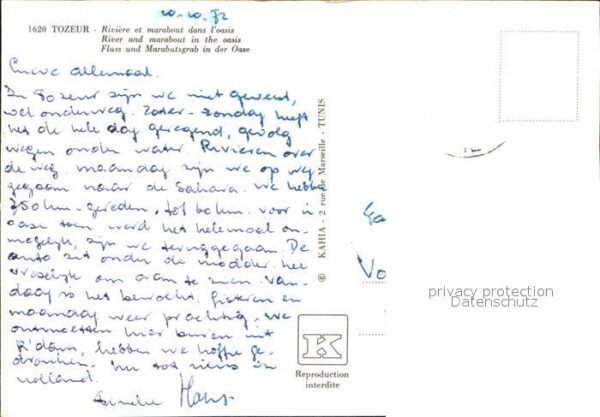 20.10.72
1620 TOZEUR - Rivière et marabout dans l'oasis
River and marabout in the oasis
Fluss und Marabutsgrab in der Oase
allemaal.
In Tozeur zijn we niet geweest,
wel onderweg. Zater-zondag heeft
het de hele dag geregend, gevolg
wegen onder water Rivieren over
de weg. maandag zijn we op weg
gegaan naar de Sahara. We hebben
350 km gereden. tot 60 km. voor 'n
oase toen werd het helemaal on-
mogelijk, zijn we teruggegaan. De
auto zit onder de modder. heel
vreselijk om aan te zien. Van-
daag is het bewolkt. Gisteren en
maandag weer prachtig. We
ontmoetten hier buren uit
R'dam, hebben we koffie ge-
dronken. tot ziens in
Holland.
Hans
© KAHIA - 2 rue de Marseille - TUNIS
K
Reproduction
interdite
Fa
Vo
privacy protection
Datenschutz